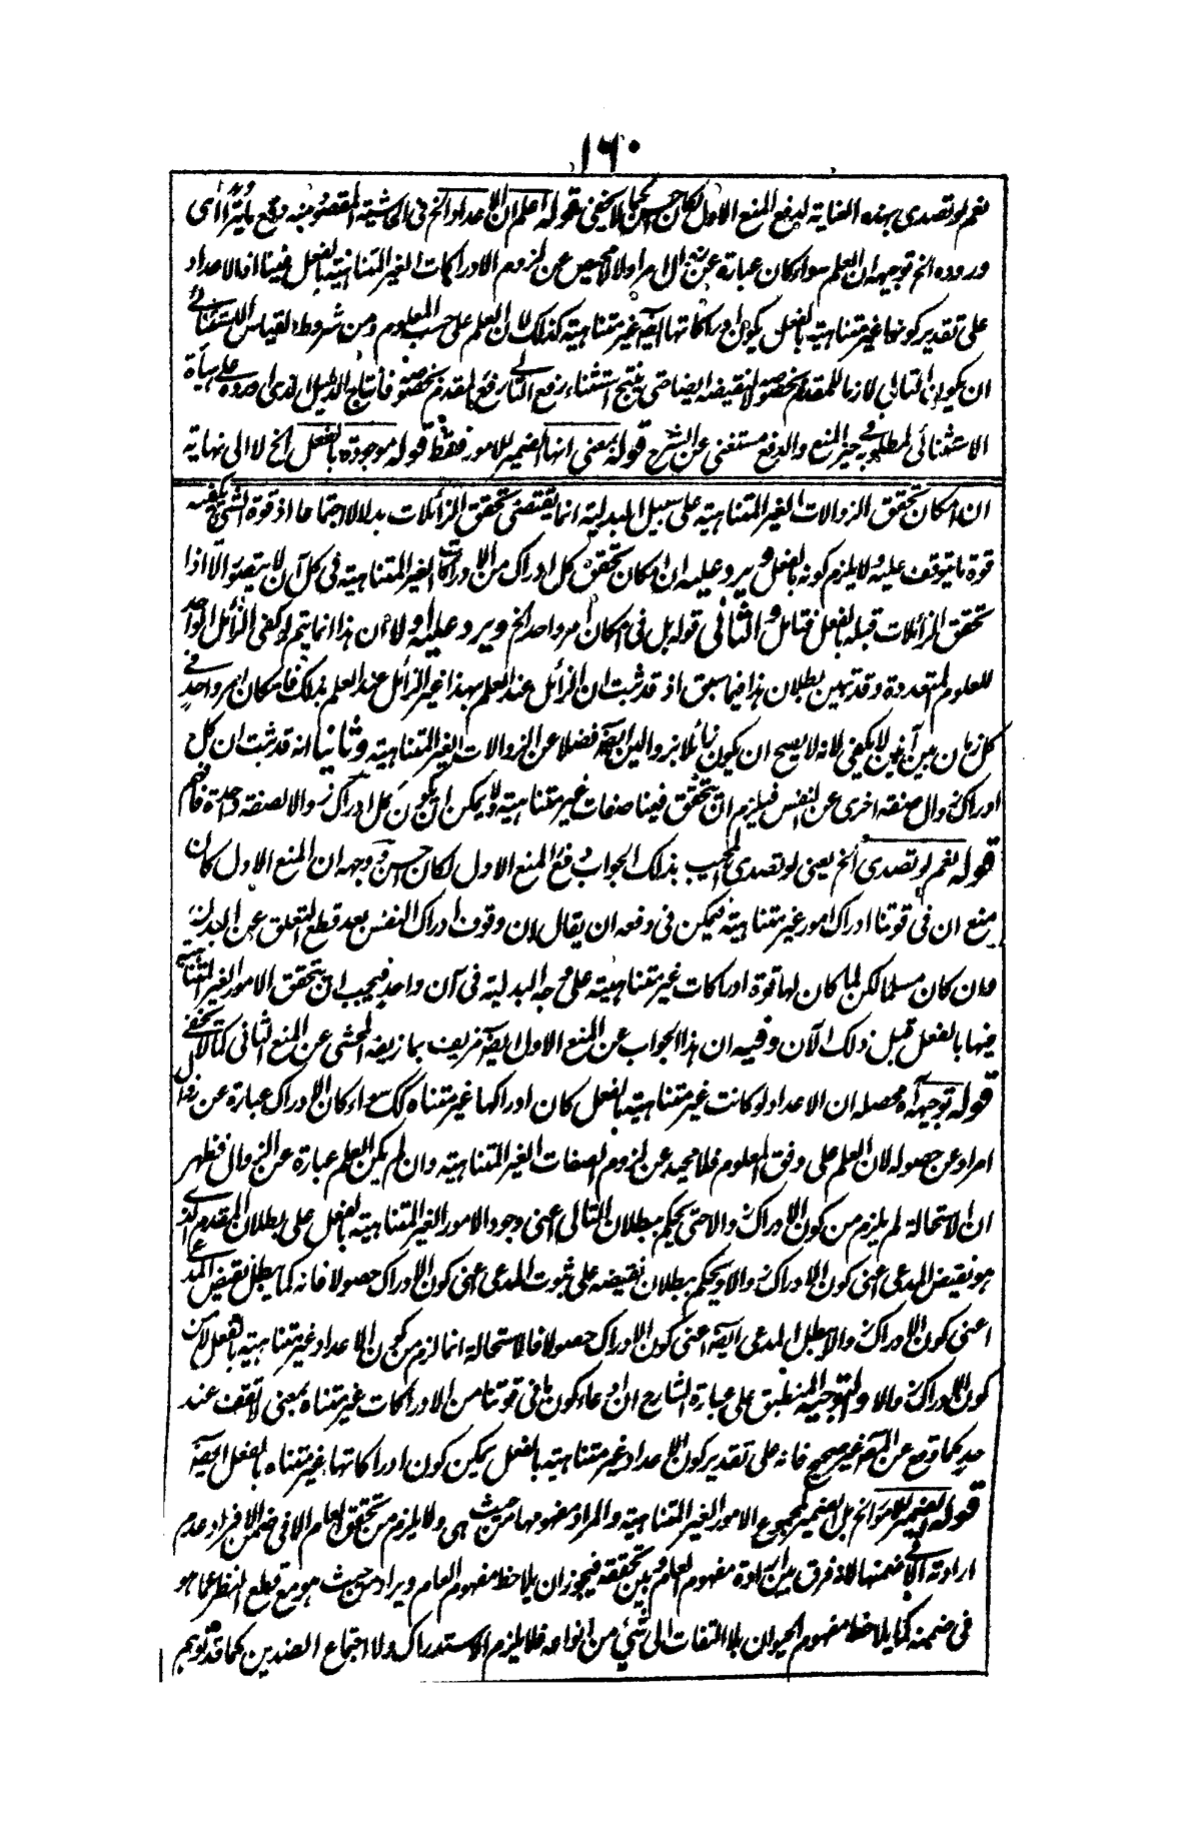 ١٦٠
نعم لو تصدى بهذه العناية لدفع المنع الاول لكان حسن كما لا يخفى قوله اعلم ان الاعداد الخ فى الحاشية المقصود منه دفع ما يتراأى
وروده الخ توجيهه ان العلم سواء كان عبارة عن زوال امر او لا لا محيص عن لزوم الادراكات الغير المتناهية بالفعل فينا اذ الاعداد
على تقدير كونها غير متناهية بالفعل يكون ادراكاتها ايضا غير متناهية كذلك لان العلم على حسب المعلوم ومن شروط القياس الاستثنائى
ان يكون التالى لازما للمقدم بخصوصه لا لنقيضه ايضا حتى ينتج استثناء رفع التالى رفع المقدم بخصوصه فانتاج الدليل الذى اورده على هيأة
الاستثنائى لمطلوبه فى حيز المنع والدفع مستغنى عن الشرح قوله بمعنى انها الضمير للامور فقط قوله موجودة بالفعل الخ لا الى نهاية
ان امكان تحقق الزوالات الغير المتناهية على سبيل البدلية انما يقتضى تحقق الزائلات بدلا لا اجتماعا اذ قوة الشئ يكفيه
قوة ما يتوقف عليه ولا يلزم كونه بالفعل ويرد عليه ان امكان تحقق كل ادراك من الادراكات الغير المتناهية فى كل آن لا يتصور الا اذا
تحقق الزائلات قبله بالفعل فتامل والثانى قوله بل فى امكان امر واحد الخ ويرد عليه اولا ان هذا انما يتم لو كفى الزائل الواحد
للعلوم المتعددة وقد تبين بطلان هذا فيما سبق اذ قد ثبت ان الزائل عند العلم بهذا غير الزائل عند العلم بذلك فامكان امر واحد فى
كل زمان بين آنين لا يكفى لانه لا يصح ان يكون زائلا بزوالين ايضا فضلا عن الزوالات الغير المتناهية وثانيا انه قد ثبت ان كل
ادراك زوال صفة اخرى عن النفس فيلزم ان يتحقق فينا صفات غير متناهية ولا يمكن ان يكون كل ادراك زوالا لصفة واحدة فافهم
قوله نعم لو تصدى الخ يعنى لو تصدى المجيب بذلك الجواب دفع المنع الاول لكان حسن وجهه ان المنع الاول كان
منع ان فى قوتنا ادراك امور غير متناهية فيمكن فى دفعه ان يقال ان وقوف ادراك النفس بعد قطع التعلق عن البدن
وان كان مسلما لكن لما كان لها قوة ادراكات غير متناهية على وجه البدلية فى آن واحد فيجب ان يتحقق الامور الغير المتناهية
فيها بالفعل قبل ذلك الآن وفيه ان هذا الجواب عن المنع الاول ايضا مزيف بما زيفه المحشى عن المنع الثانى كما لا يخفى
قوله توجيهه آه محصله ان الاعداد لو كانت غير متناهية بالفعل كان ادراكها غير متناه كك سواء كان الادراك عبارة عن زوال
امر او عن حصوله لان العلم على وفق المعلوم فلا محيد عن لزوم الصفات الغير المتناهية وان لم يكن العلم عبارة عن الزوال فظهر
ان الاستحالة لم يلزم من كون الادراك زوالا حتى يحكم ببطلان التالى اعنى وجود الامور الغير المتناهية بالفعل على بطلان المقدم الذى
هو نقيض المدعى اعنى كون الادراك زوالا ويحكم ببطلان نقيضه على ثبوت المدعى اعنى كون الادراك حصولا فانه كما يبطل نقيض المدعى
اعنى كون الادراك زوالا يبطل المدعى ايضا اعنى كون الادراك حصولا فالاستحالة انما لزم من كون الاعداد غير متناهية بالفعل لا من
كون الادراك زوالا والتوجيه المنطبق على عبارة الشارح ان ادعاء كون ما فى قوتنا من الادراكات غير متناه بمعنى لا تقف عند
حد كما وقع عن المصنف غير صحيح فانه على تقدير كون الاعداد غير متناهية بالفعل يمكن كون ادراكاتها غير متناه بالفعل ايضا
قوله الضمير للامور الخ بل الضمير لمجموع الامور الغير المتناهية والمراد مفهومها من حيث هى ولا يلزم من تحقق العام الا فى ضمن الافراد عدم
ارادته الا فى ضمنها لانه فرق بين ارادة مفهوم العام وبين تحققه فيجوز ان يلاحظ مفهوم العام ويراد من حيث هو مع قطع النظر عما هو
فى ضمنه كما يلاحظ مفهوم الحيوان بلا التفات الى شئ من انواعه فلا يلزم الاستدراك ولا اجتماع الضدين كما قد توهم